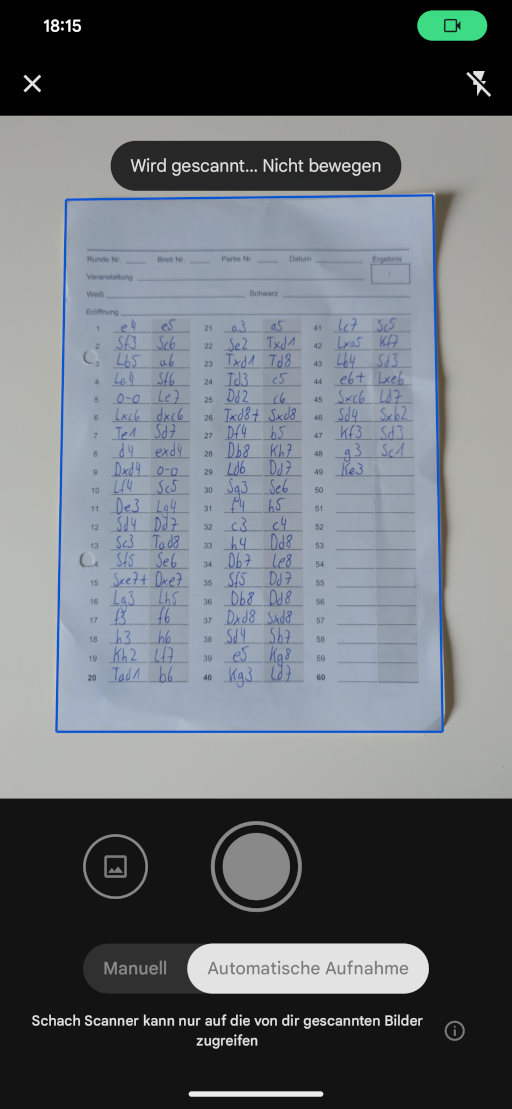 18:15
Wird gescannt... Nicht bewegen
Runde Nr. Brett Nr. Partie Nr. Datum Ergebnis
Veranstaltung
Weiß Schwarz
Eröffnung
1 e4 e5 21 a3 a5 41 Lc7 Sc5
2 Sf3 Sc6 22 Se2 Txd1 42 Lxa5 Kf7
3 Lb5 a6 23 Txd1 Td8 43 Lb4 Sd3
4 La4 Sf6 24 Td3 c5 44 e6+ Lxe6
5 0-0 Le7 25 Dd2 c6 45 Sxc6 Ld7
6 Lxc6 dxc6 26 Txd8+ Sxd8 46 Sd4 Sxb2
7 Te1 Sd7 27 Df4 b5 47 Kf3 Sd3
8 d4 exd4 28 Db8 Kh7 48 g3 Sc1
9 Dxd4 0-0 29 Ld6 Dd7 49 Ke3
10 Lf4 Sc5 30 Sg3 Se6 50
11 De3 Lg4 31 f4 h5 51
12 Sd4 Dd7 32 c3 c4 52
13 Sc3 Tad8 33 h4 Dd8 53
Sf5 Se6 34 Db7 Le8 54
15 Sxe7+ Dxe7 35 Sf5 Dd7 55
16 Lg3 Lh5 36 Db8 Dd8 56
17 f3 f6 37 Dxd8 Sxd8 57
18 h3 h6 38 Sd4 Sb7 58
19 Kh2 Lf7 39 e5 Kg8 59
20 Tad1 b6 40 Kg3 Ld7 60
Manuell Automatische Aufnahme
Schach Scanner kann nur auf die von dir gescannten Bilder
zugreifen